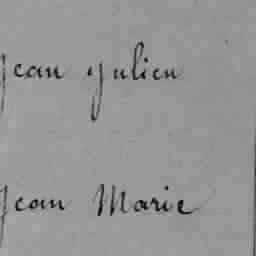 Jean Julien
Jean Marie